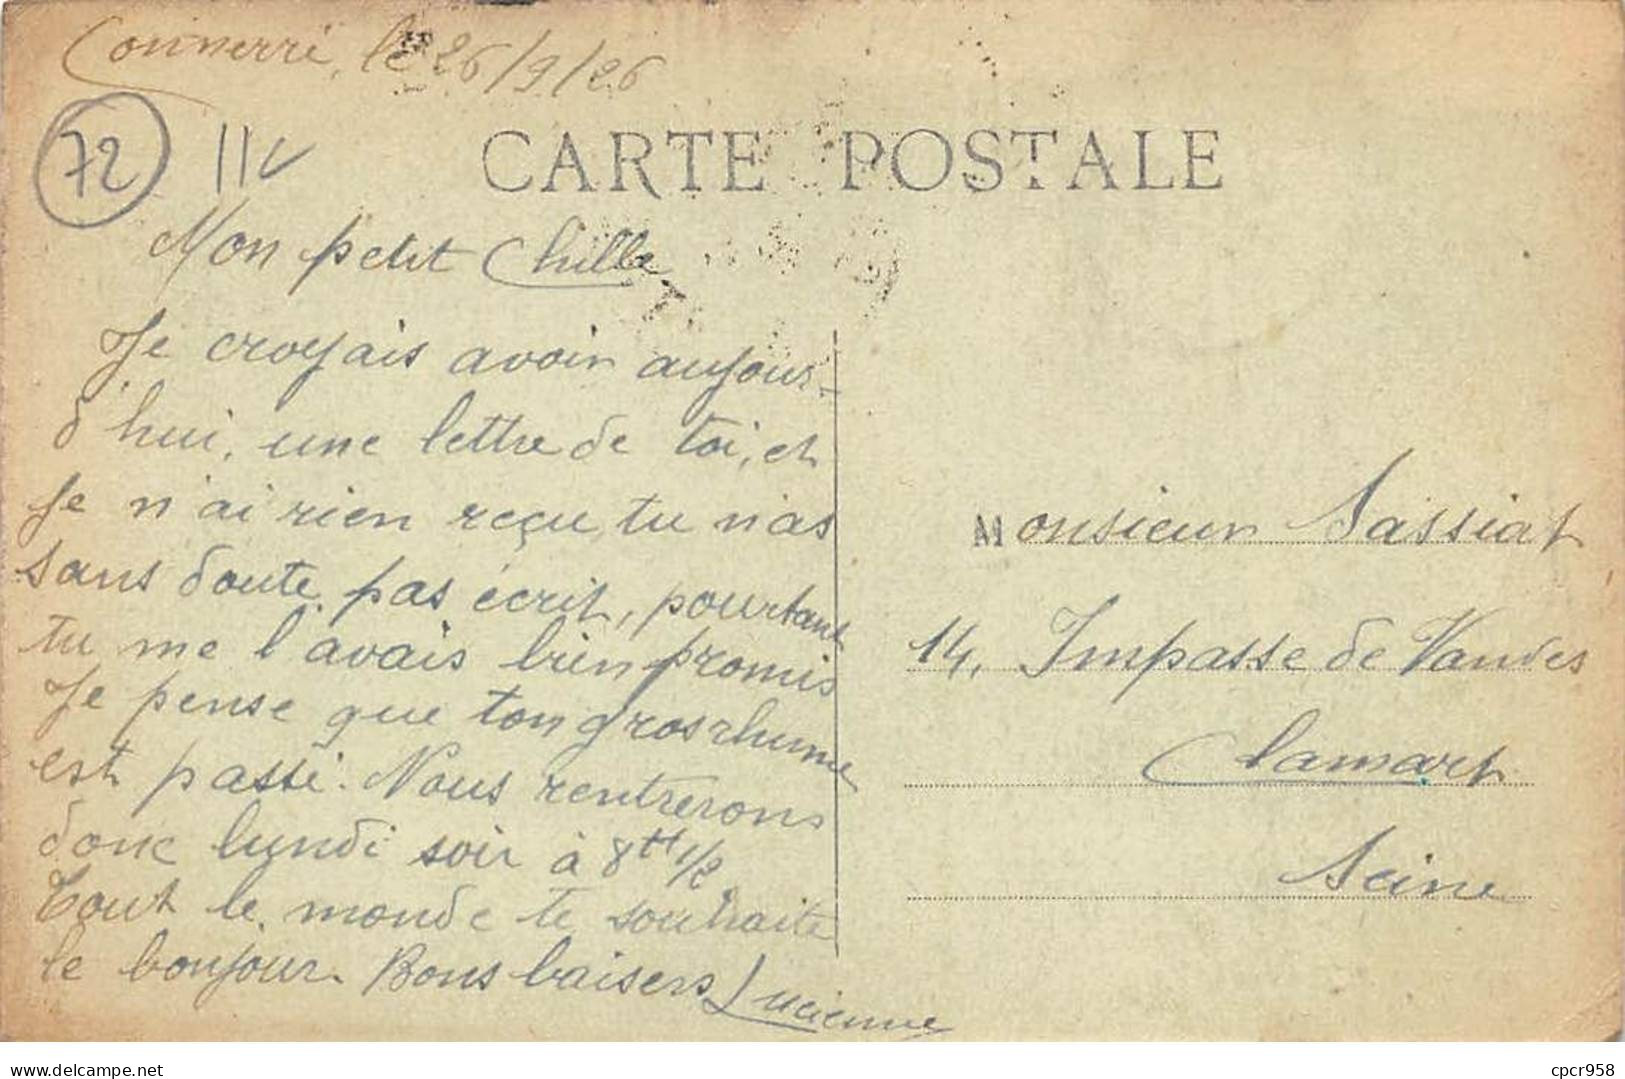 Connerré, le 26/9/26
72 11v
CARTE POSTALE
Mon petit Chille
Je croyais avoir aujour-
d'hui, une lettre de toi, et
je n'ai rien reçu, tu n'as
sans doute pas écrit, pourtant
tu me l'avais bien promis
Je pense que ton gros rhume
est passé. Nous rentrerons
donc lundi soir à 8H 1/2
Tout le monde te souhaite
le bonjour. Bons baisers Lucienne
Monsieur Sassiat
14, Impasse de Vanves
Clamart
Seine
delcampe.net
cpcr958